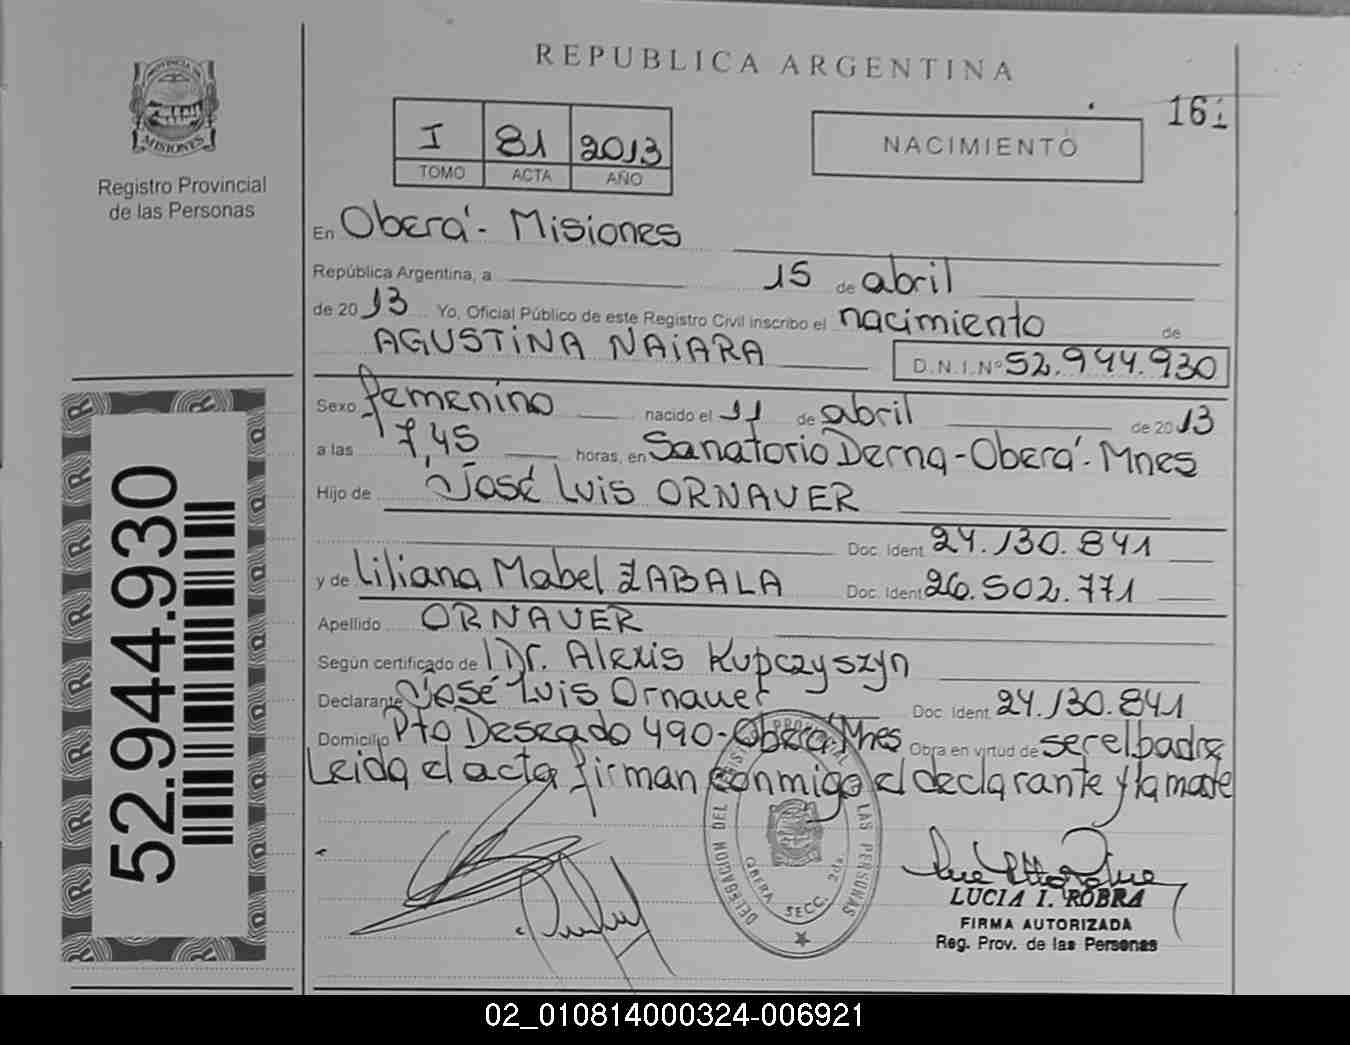 REPUBLICA ARGENTINA
PROVINCIA DE
MISIONES
Registro Provincial
de las Personas
I 81 2013
TOMO ACTA AÑO
NACIMIENTO
161
En Oberá - Misiones
República Argentina, a 15 de abril
de 2013 Yo, Oficial Público de este Registro Civil inscribo el nacimiento de
AGUSTINA NAIARA D.N.I.Nº 52.944.930
Sexo femenino nacido el 11 de abril de 2013
a las 7,45 horas, en Sanatorio Derna - Oberá - Mnes
Hijo de José Luis ORNAUER
Doc. Ident. 24.130.841
y de Liliana Mabel ZABALA Doc. Ident. 26.502.771
Apellido ORNAUER
Según certificado de Dr. Alexis Kupczyszyn
Declarante José Luis Ornauer Doc. Ident. 24.130.841
Domicilio Pto Deseado 490 - Oberá Mnes Obra en virtud de ser el padre
Leida el acta firman conmigo el declarante y la madre
52.944.930
DELEGACION DEL REGISTRO PROVINCIAL DE LAS PERSONAS
OBERA SECC. 2da.
LUCIA I. ROBRA
FIRMA AUTORIZADA
Reg. Prov. de las Personas
02_010814000324-006921